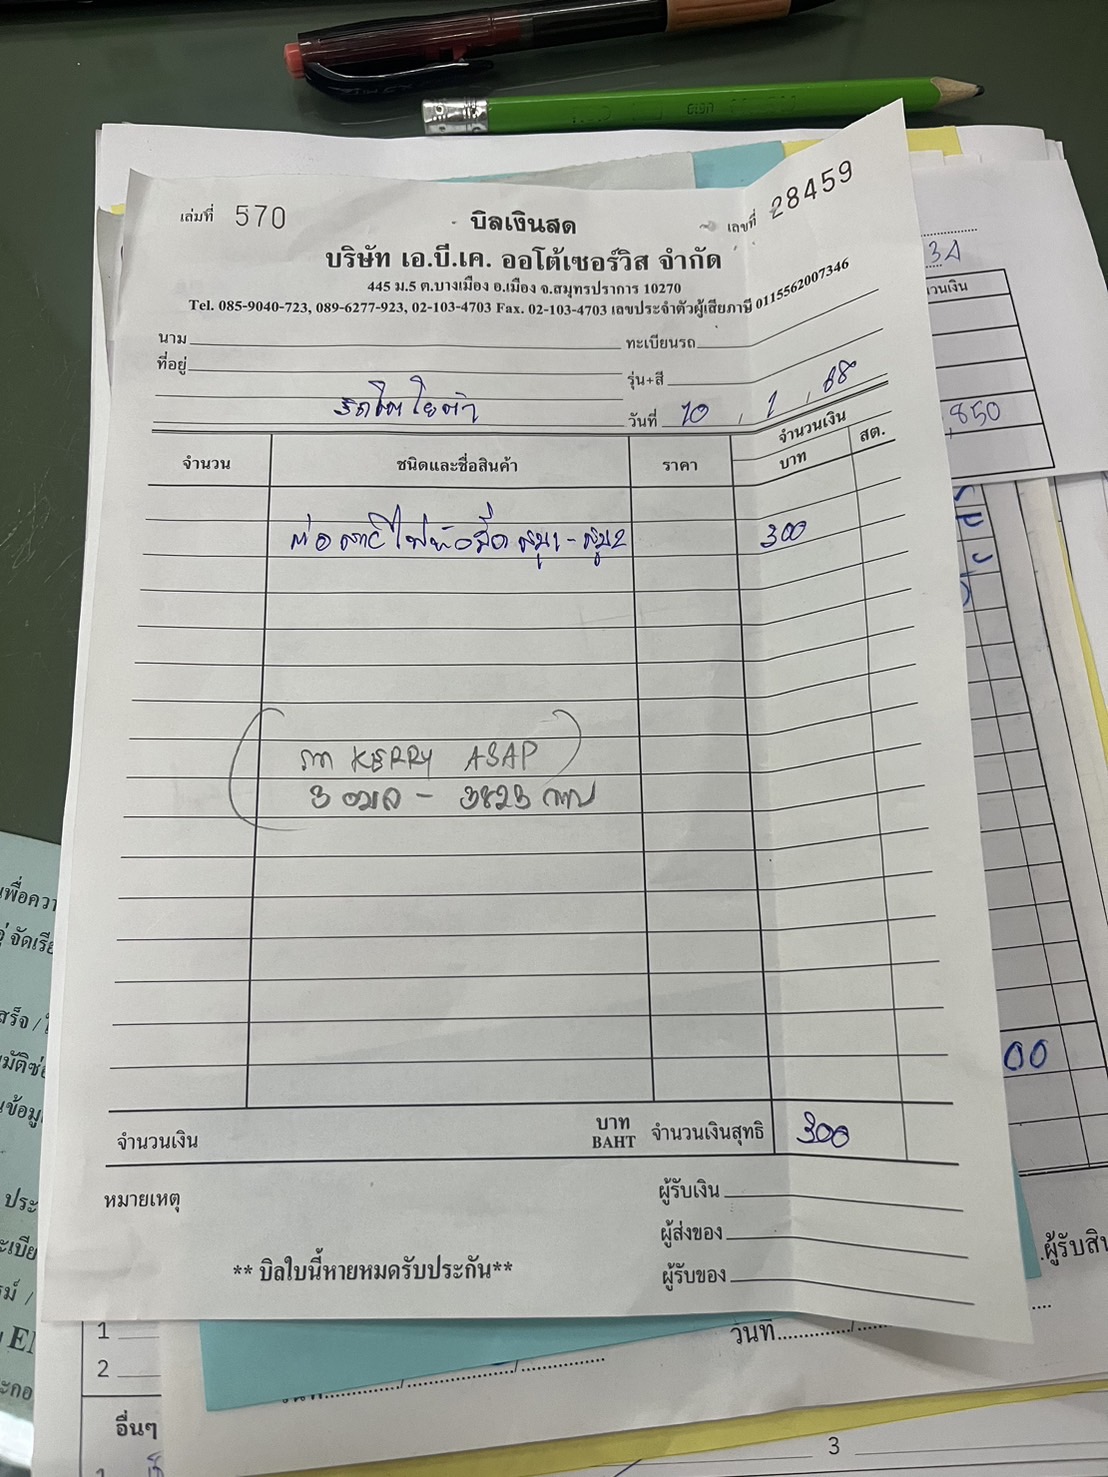 เล่มที่ 570
เลขที่ 28459
บิลเงินสด
บริษัท เอ.บี.เค. ออโต้เซอร์วิส จำกัด
445 ม.5 ต.บางเมือง อ.เมือง จ.สมุทรปราการ 10270
Tel. 085-9040-723, 089-6277-923, 02-103-4703 Fax. 02-103-4703 เลขประจำตัวผู้เสียภาษี 0115562007346
นาม ทะเบียนรถ
ที่อยู่ รุ่น+สี
วันที่ 10 , 1 , 68
จำนวน ชนิดและชื่อสินค้า ราคา จำนวนเงิน
บาท สต.
ต่อสายไฟหัวฉีด สูบ1 - สูบ2 300
รถ KERRY ASAP
3 ฒล - 3823 กทม
จำนวนเงิน บาท BAHT จำนวนเงินสุทธิ 300
หมายเหตุ
ผู้รับเงิน
ผู้ส่งของ
** บิลใบนี้หายหมดรับประกัน** ผู้รับของ
850
00
วันที่
1
2
อื่นๆ
3